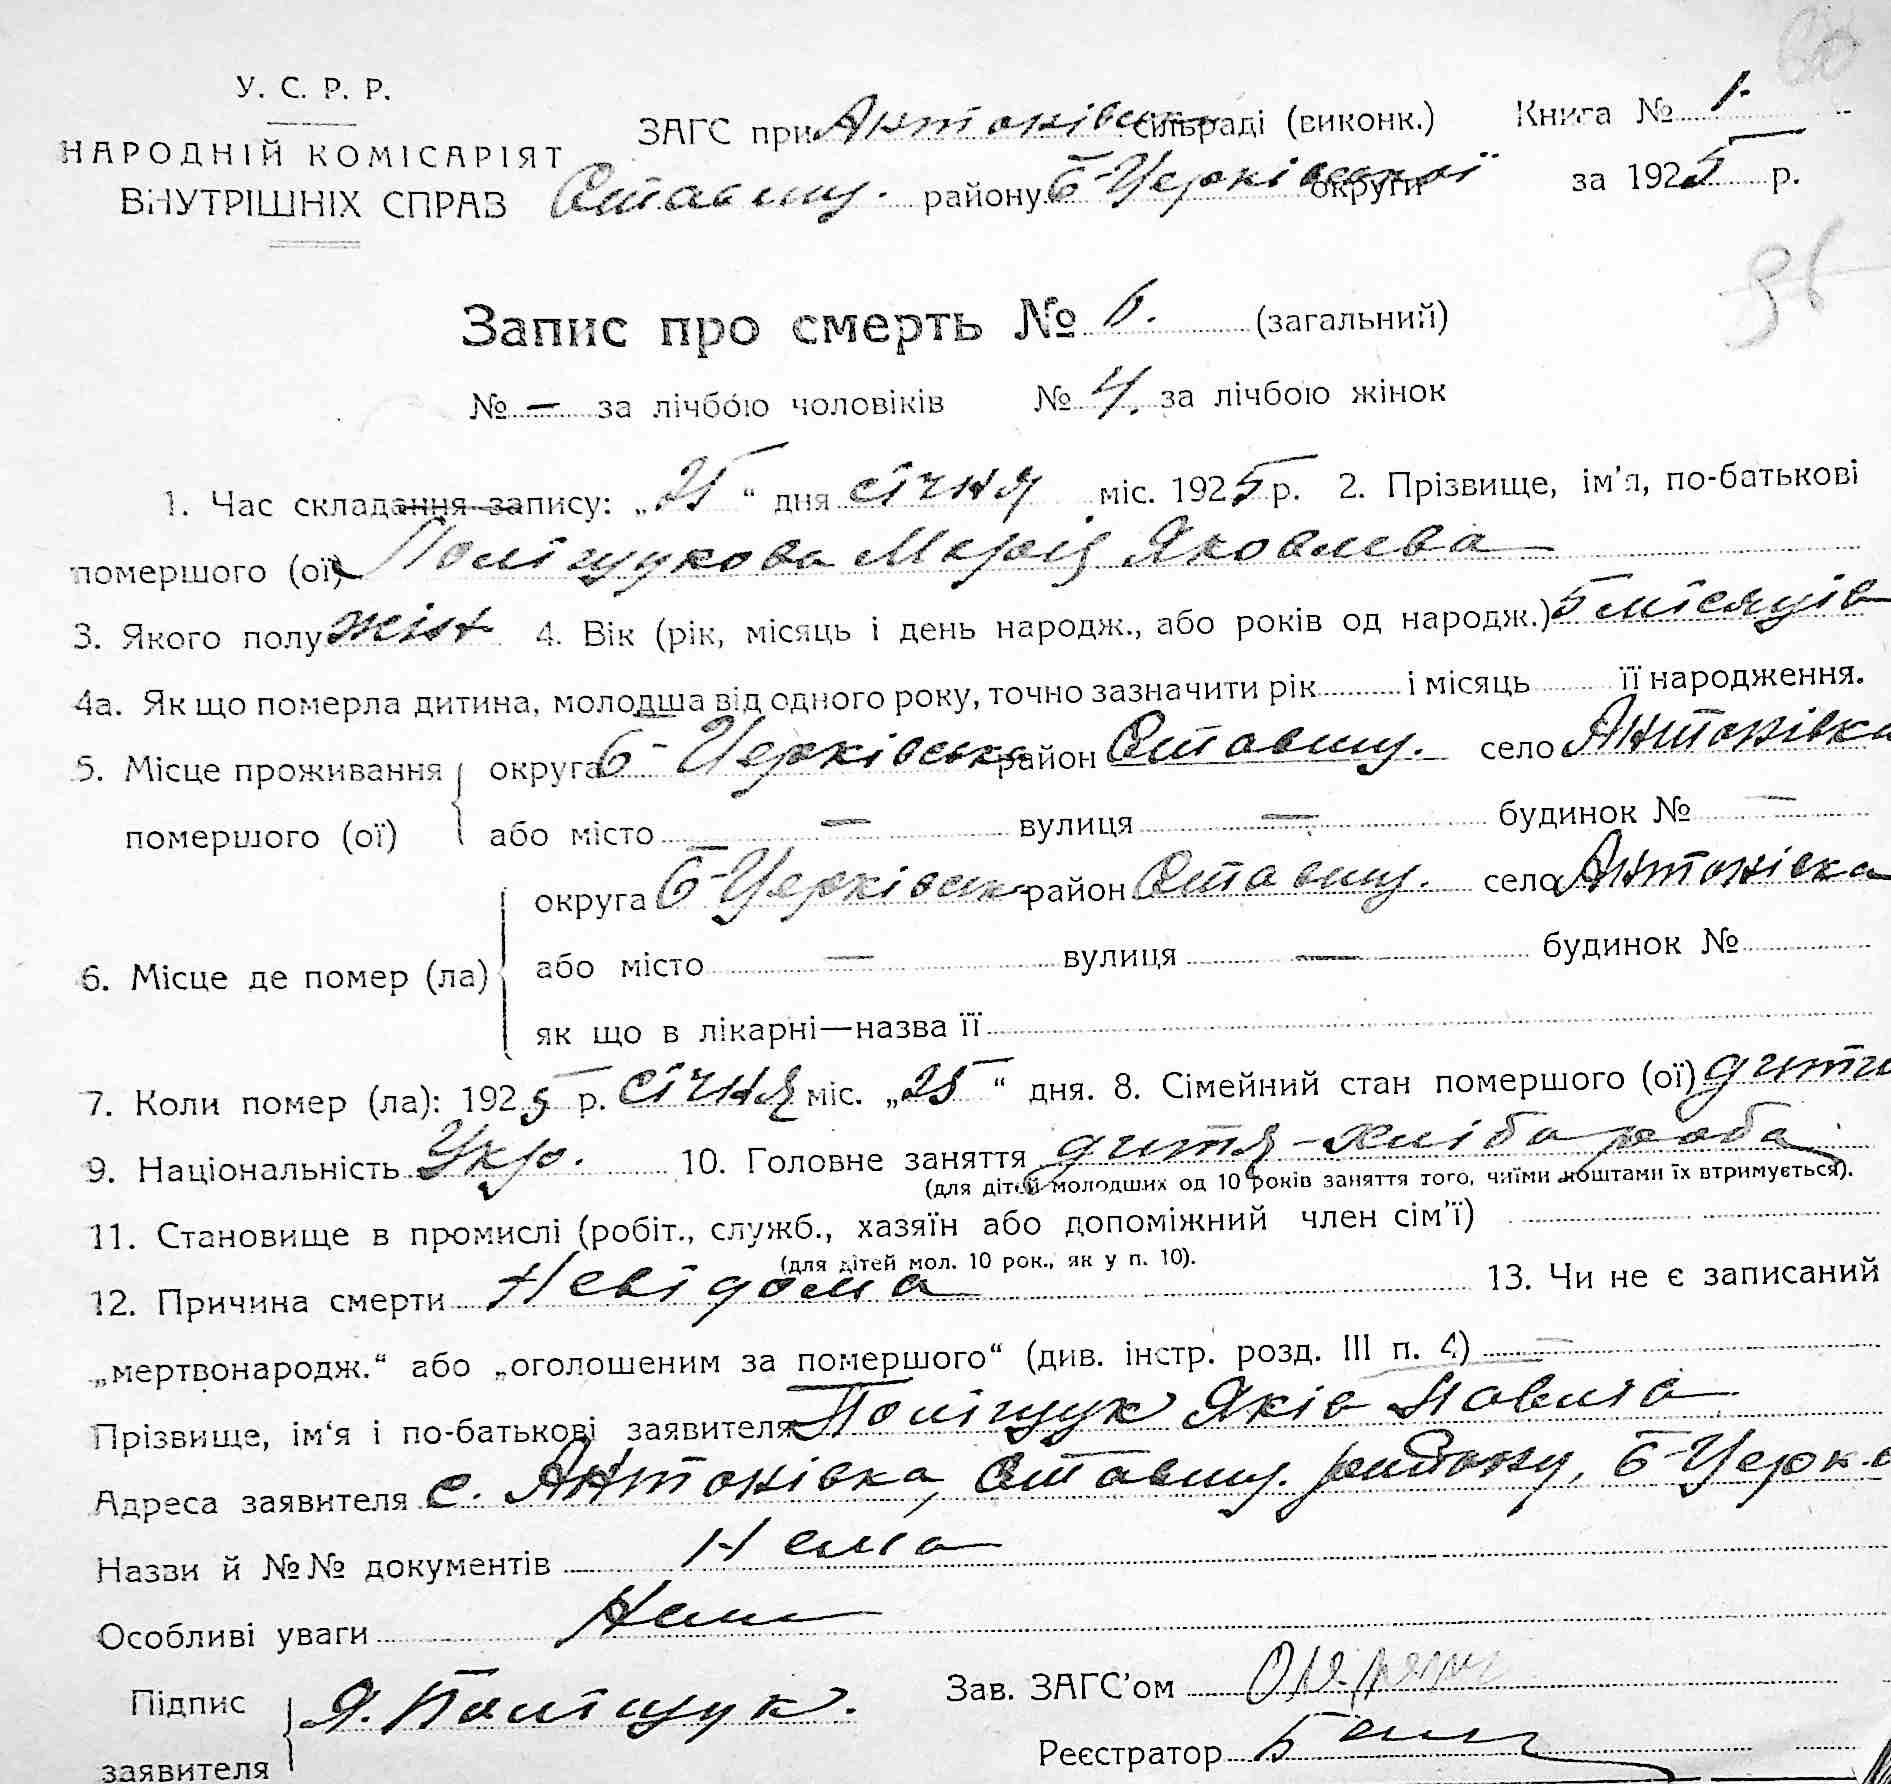 У. С. Р. Р.
НАРОДНІЙ КОМІСАРІЯТ
ВНУТРІШНІХ СПРАВ
ЗАГС при Антонівськ сільраді (виконк.) Книга № 1.
Ставищ. району Б-Церківської округи за 1925 р.
96
Запис про смерть № 6. (загальний)
№ — за лічбою чоловіків № 4. за лічбою жінок
1. Час складання запису: „25“ дня січня міс. 1925 р. 2. Прізвище, ім'я, по-батькові
помершого (ої) Поліщукова Марія Яковлева
3. Якого полу жіноч 4. Вік (рік, місяць і день народж., або років од народж.) 5 місяців
4а. Як що померла дитина, молодша від одного року, точно зазначити рік і місяць її народження.
5. Місце проживання помершого (ої) округа Б-Церківська район Ставищ. село Антонівка
або місто — вулиця — будинок № —
6. Місце де помер (ла) округа Б-Церківськ район Ставищ. село Антонівка
або місто — вулиця — будинок №
як що в лікарні—назва її
7. Коли помер (ла): 1925 р. січня міс. „25“ дня. 8. Сімейний стан помершого (ої) дитя
9. Національність Укр. 10. Головне заняття дитя - хлібороба
(для дітей молодших од 10 років заняття того, чиїми коштами їх втримується).
11. Становище в промислі (робіт., служб., хазяїн або допоміжний член сім'ї)
(для дітей мол. 10 рок., як у п. 10).
12. Причина смерти Невідома 13. Чи не є записаний
„мертвонародж.“ або „оголошеним за помершого“ (див. інстр. розд. III п. 4) —
Прізвище, ім'я і по-батькові заявителя Поліщук Яків Павлів
Адреса заявителя с. Антонівка, Ставищ. району, Б-Церк.
Назви й №№ документів Нема
Особливі уваги Нема
Підпис заявителя Я. Поліщук.
Зав. ЗАГС'ом
Реєстратор